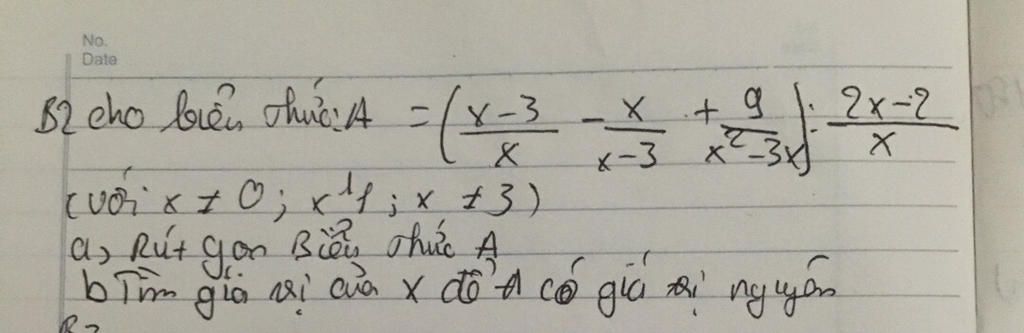 No.
Date
B2 cho biểu thức: A = (x-3/x - x/x-3 + 9/x²-3x) : 2x-2/x
(với x ≠ 0; x ≠ 1; x ≠ 3)
a, Rút gọn Biểu thức A
b Tìm giá trị của x để A có giá trị nguyên